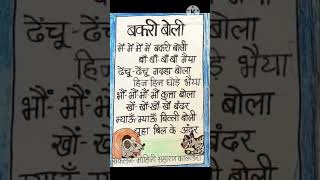 बकरी बोली
में में में में बकरी बोली
बाँ बाँ बाँ बाँ गैया
ढेंचू-ढेंचू गदहा बोला
हिन हिन घोड़े भैया
भौं-भौं-भौं-भौं कुत्ता बोला
खों-खों-खों-खों बंदर
म्याऊँ म्याऊँ बिल्ली बोली
चूहा बिल के अंदर